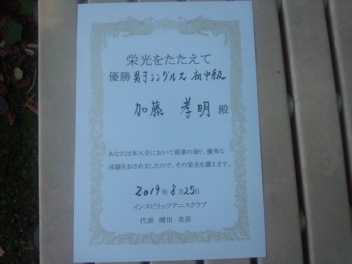 栄光をたたえて
優勝 男子シングルス 初中級
加藤 孝明 殿
あなたは本大会において頭書の通り、優秀な
成績をおさめましたので、その栄光を讃えます。
2019年8月25日
インスピリッツテニスクラブ
代表 増田 吉彦